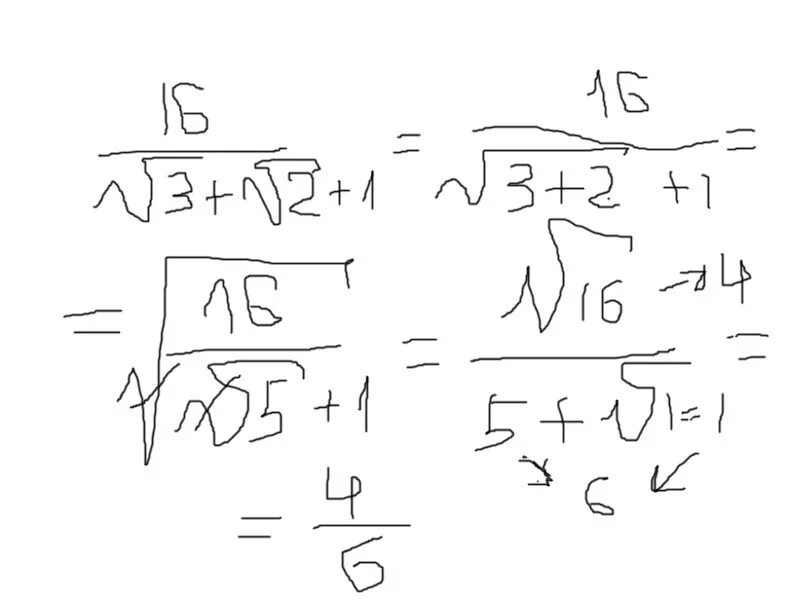 16/(√3+√2+1) = 16/(√(3+2) +1) =
= √(16/(√5+1)) = √16→4/(5+√1=1) =
↘ 6 ↙
= 4/6